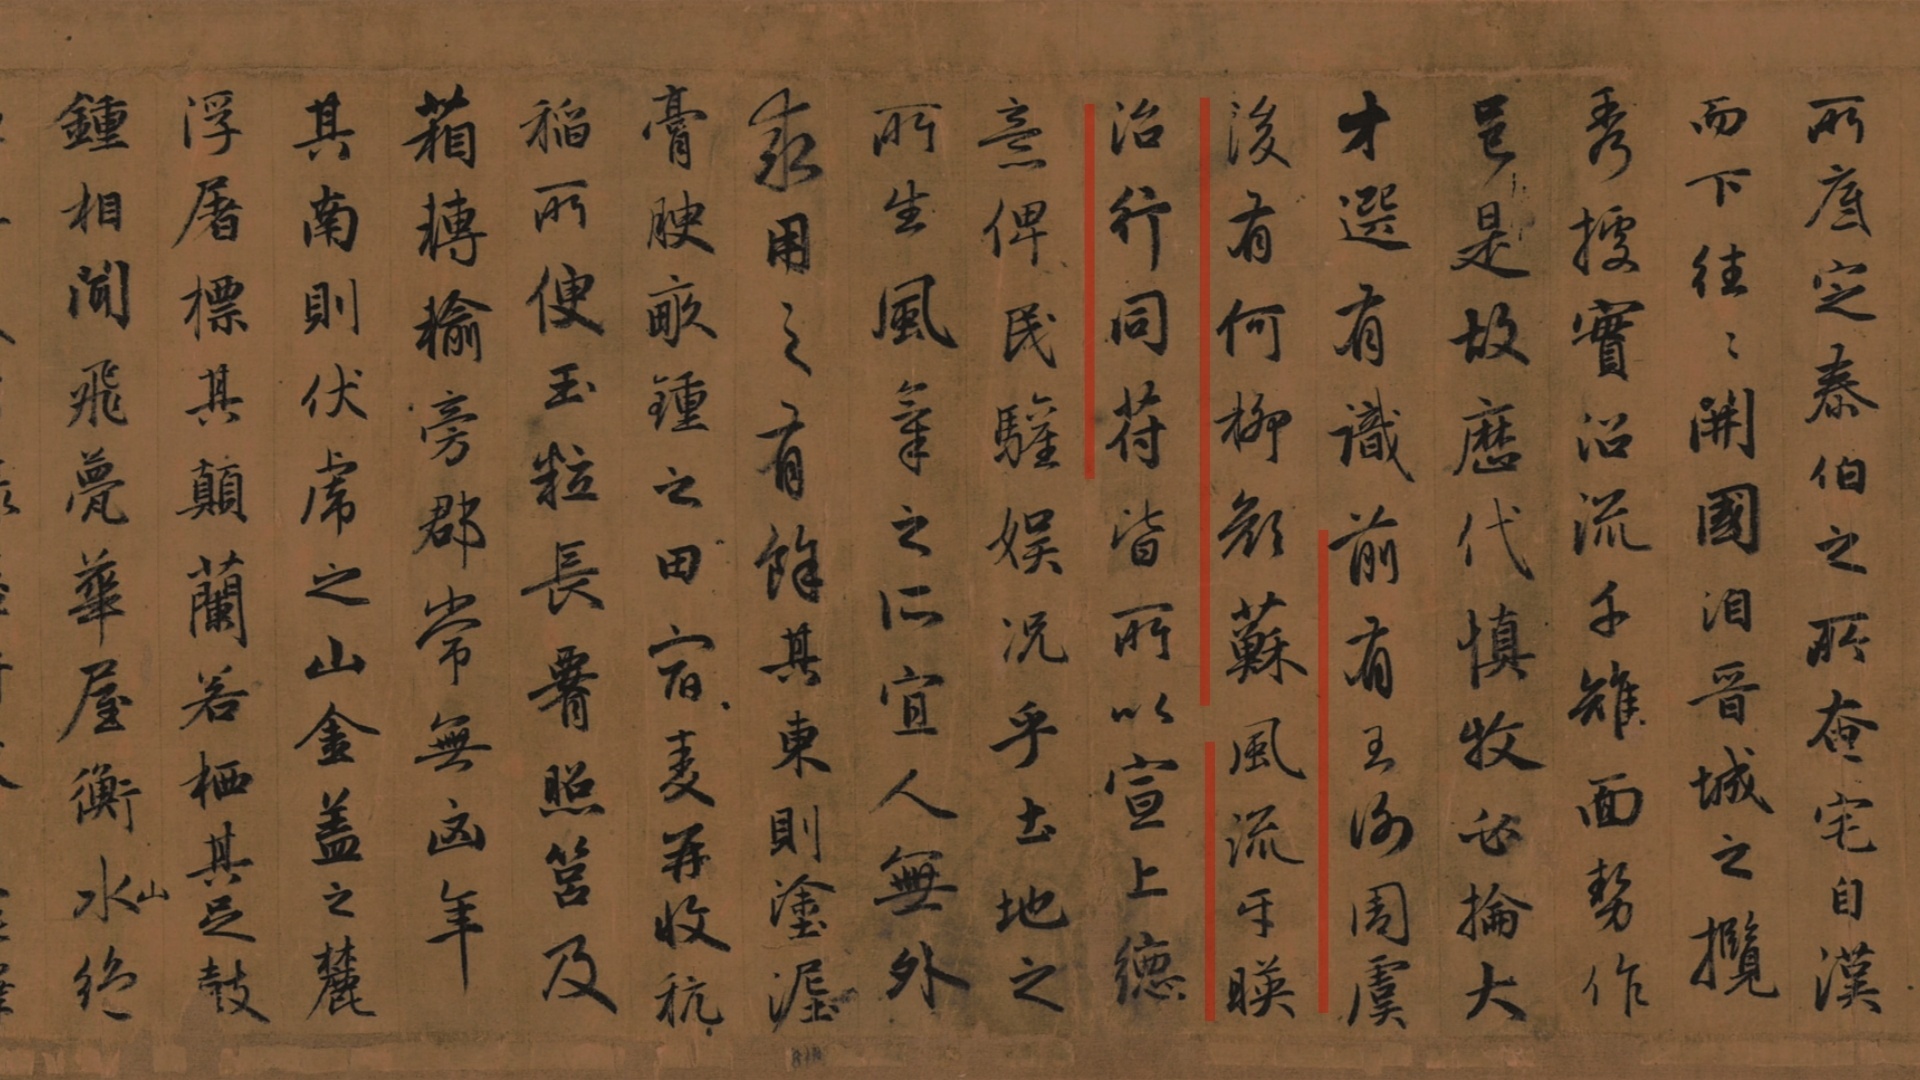 所底定泰伯之所奄宅自漢
而下往〻開國洎晉城之攬
秀據實沿流千雉面勢作
邑是故歷代慎牧必掄大
才選有識前有王謝周虞
後有何柳顏蘇風流互暎
治行同符皆所以宣上德
意俾民驩娛況乎土地之
所生風氣之所宜人無外
求用之有餘其東則塗泥
膏腴畝鍾之田宿麥再收秔
稻所便玉粒長䙅照筥及
箱轉輸旁郡常無凶年
其南則伏虎之山金蓋之麓
浮屠標其顛蘭若栖其足鼓
鍾相聞飛甍華屋衡水山絕